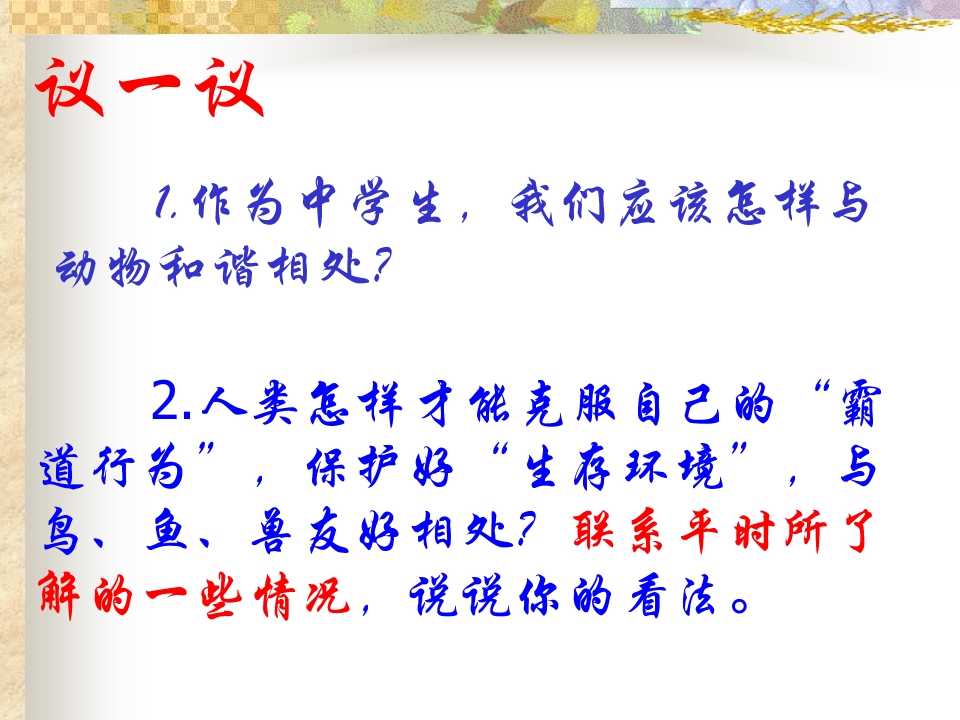 议一议
1.作为中学生，我们应该怎样与
动物和谐相处?
2.人类怎样才能克服自己的“霸
道行为”，保护好“生存环境”，与
鸟、鱼、兽友好相处?联系平时所了
解的一些情况，说说你的看法。